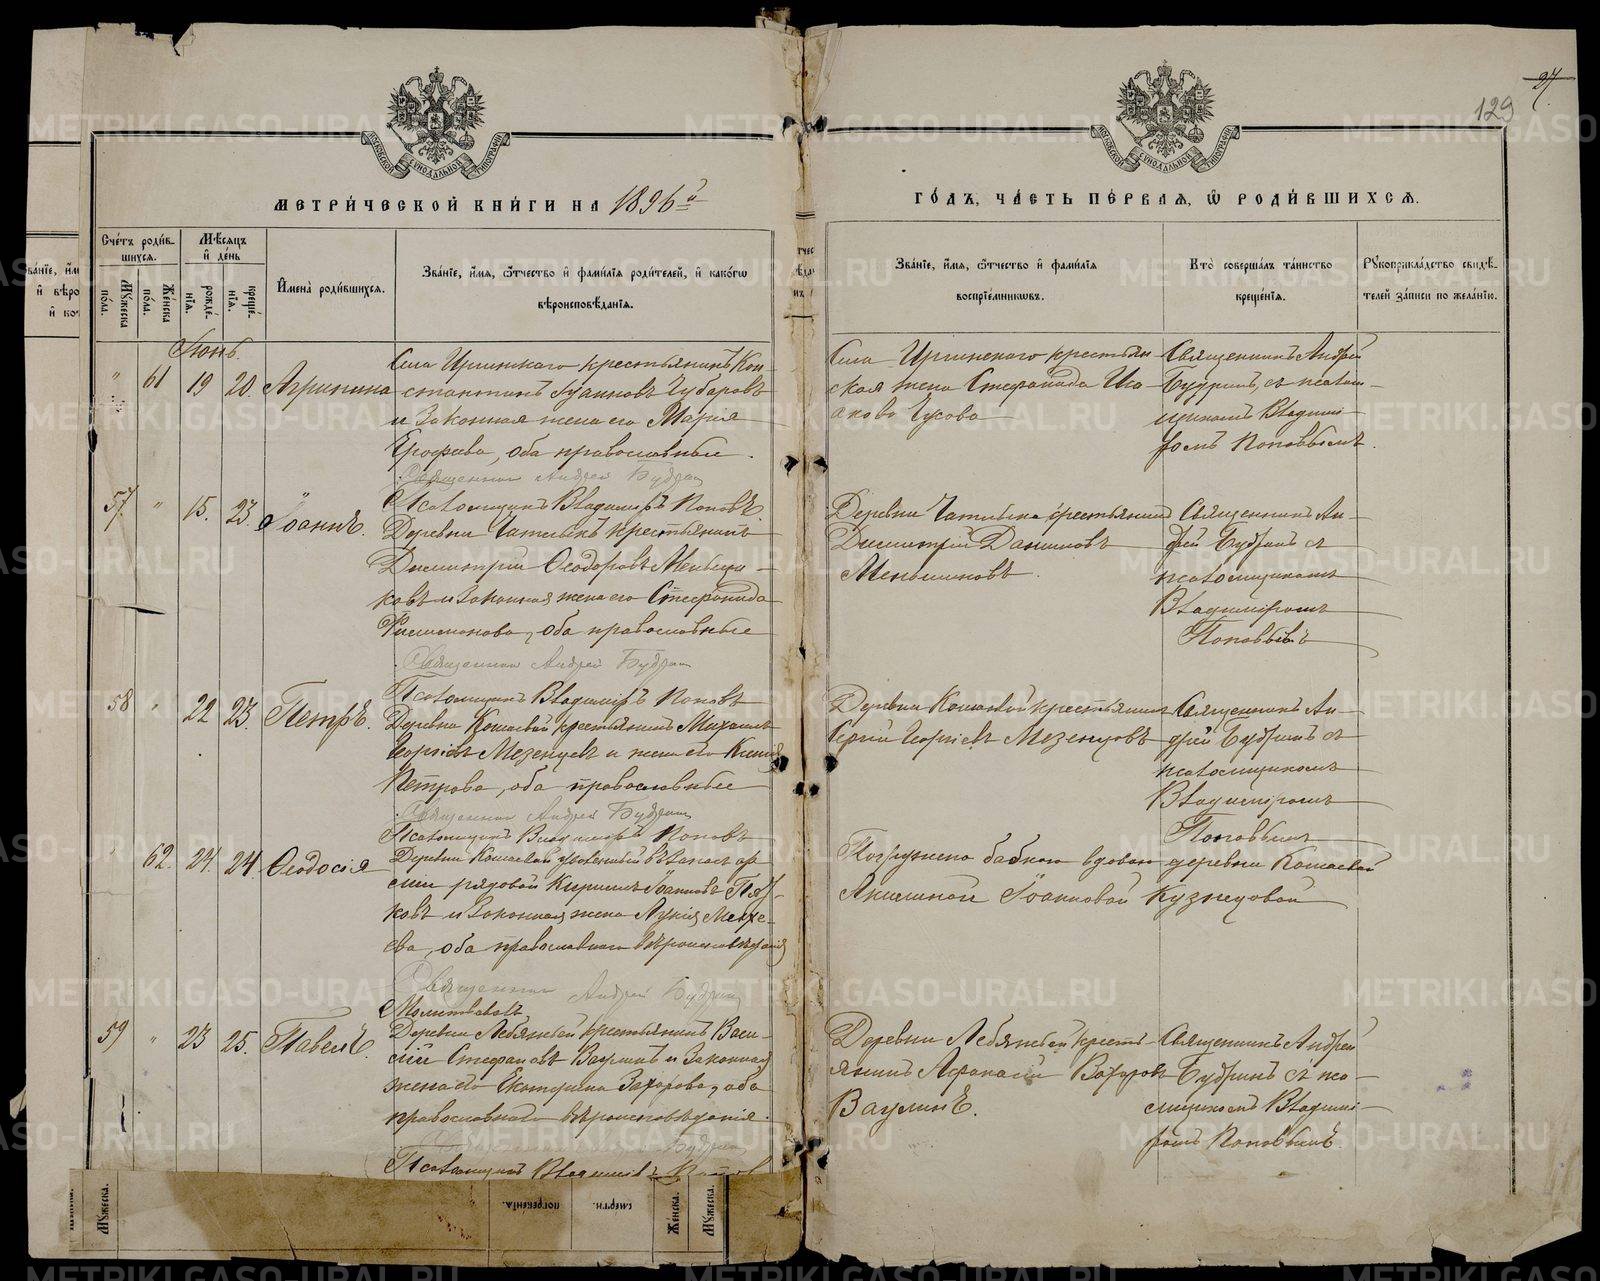 129
27
МЕТРИ́ЧЕСКОЙ КНИ́ГИ НА 1896й
ГО́ДЪ, ЧА́СТЬ ПЕ́РВАЯ, Ѡ РОДИ́ВШИХСЯ.
Сче́тъ роди́вшихся.
Му́жеска по́ла.
Же́нска по́ла.
Мѣ́сяцъ и де́нь
рожде́нїя.
креще́нїя.
И҆мена̀ роди́вшихся.
Зва́нїе, и҆́мя, ѻ҆́тчество и҆ фами́лїя роди́телей, и҆ како́гѡ вѣроисповѣ́данїя.
Зва́нїе, и҆́мя, ѻ҆́тчество и҆ фами́лїя воспрїе́мниковъ.
Кто̀ соверша́лъ та́инство креще́нїя.
Рꙋкоприкла́дство свидѣ́телей за́писи по жела́нїю.
Іюнь.
" 61 19 20. Агрипина
Села Иргинскаго крестьянинъ Кон-
стантинъ Іоанновъ Чубаровъ
и законная жена его Марія
Ерофѣева, оба православные.
Священникъ Андрей Будринъ
Псаломщикъ Владиміръ Поповъ.
Села Иргинскаго крестьян
ская жена Стефанида Иса
акова Чусова
Священникъ Андрей
Будринъ, съ псалом-
щикомъ Владимі-
ромъ Поповымъ.
57 " 15. 23. Іоаннъ.
Деревни Чатлыкъ крестьянинъ
Димитрій Ѳеодоровъ Меньши-
ковъ и законная жена его Стефанида
Филимонова, оба православные
Священникъ Андрей Будринъ
Псаломщикъ Владиміръ Поповъ
Деревни Чатлыка крестьянинъ
Димитрій Данииловъ
Меньшиковъ.
Священникъ Ан-
дрей Будринъ съ
псаломщикомъ
Владиміромъ
Поповымъ
58 " 22 23. Петръ.
Деревни Кошаевой крестьянинъ Михаилъ
Георгіевъ Мезенцевъ и жена его Ксенія
Петрова, оба православные
Священникъ Андрей Будринъ
Псаломщикъ Владиміръ Поповъ
Деревни Кошаевой крестьянинъ
Сергій Георгіевъ Мезенцовъ
Священникъ Ан-
дрей Будринъ съ
псаломщикомъ
Владиміромъ
Поповымъ
" 62. 24. 24. Ѳеодосія
Деревни Кошаевой уволенный въ запасъ ар
міи рядовой Кириллъ Іоанновъ
и законная жена Лукія
оба православнаго вѣроисповѣданія
Священникъ Андрей Будринъ
Молитвовалъ
Погружена бабкою вдовою деревни Кошаевой
Акилиной Іоанновой Кузнецовой
59 " 23 25. Павелъ.
Деревни Лебяжьей крестьянинъ Васи-
лій Стефановъ Ваулинъ и законная
жена его Екатерина Захарова, оба
православнаго вѣроисповѣданія.
Будринъ
Псаломщикъ Владиміръ Поповъ
Деревни Лебяжьей кресть
янинъ Афанасій
Ваулинъ.
Священникъ Андрей
Будринъ съ пса-
ломщикомъ Владимі-
ромъ Поповымъ.
Му́жеска.
погребе́нїя.
сме́рти.
Же́нска.
Му́жеска.
METRIKI.GASO-URAL.RU